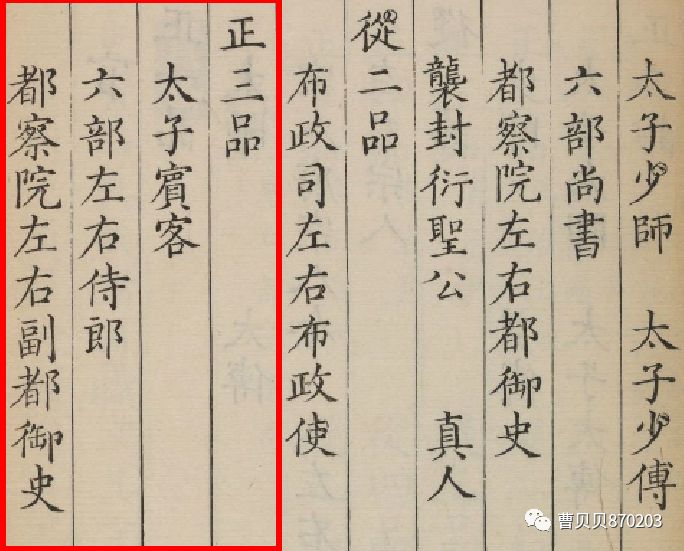 太子少師 太子少傅
六部尚書
都察院左右都御史
襲封衍聖公 真人
從二品
布政司左右布政使
正三品
太子賓客
六部左右侍郎
都察院左右副都御史
曹贝贝870203